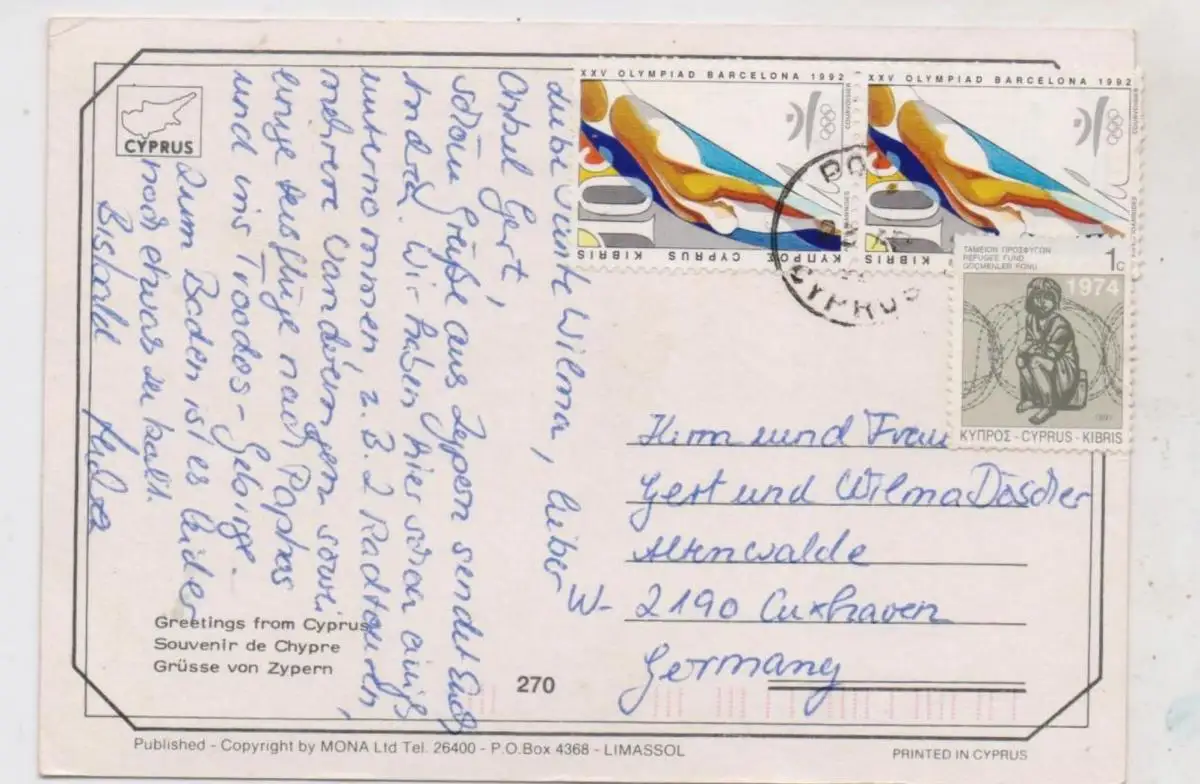 CYPRUS
Liebe Tante Wilma, lieber
Onkel Gert,
Grüße aus Zypern sendet Euch
Andrea. Wir haben hier schon einiges
unternommen, z.B. 2 Radtouren,
mehrere Wanderungen sowie
einige Ausflüge nach Paphos
und ins Troodos-Gebirge.
Zum Baden ist es leider
noch etwas zu kalt.
Bis bald
Greetings from Cyprus
Souvenir de Chypre
Grüsse von Zypern
270
XXV OLYMPIAD BARCELONA 1992
COURVOISIER
10c
ΚΥΠΡΟΣ CYPRUS KIBRIS
XXV OLYMPIAD BARCELONA 1992
COURVOISIER
10c
KIBRIS
CYPRUS
ΤΑΜΕΙΟΝ ΠΡΟΣΦΥΓΩΝ
REFUGEE FUND
GÖÇMENLER FONU
1c
1974
1991
ΚΥΠΡΟΣ-CYPRUS-KIBRIS
Herrn und Frau
Gert und Wilma Döscher
Altenwalde
W- 2190 Cuxhaven
Germany
Published - Copyright by MONA Ltd Tel. 26400 - P.O.Box 4368 - LIMASSOL
PRINTED IN CYPRUS